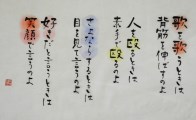 歌を歌うときは
背筋を伸ばすのよ
人を殴るときは
素手で殴るのよ
さよならするときは
目を見て言うのよ
好きだと言うときは
笑顔で言うのよ